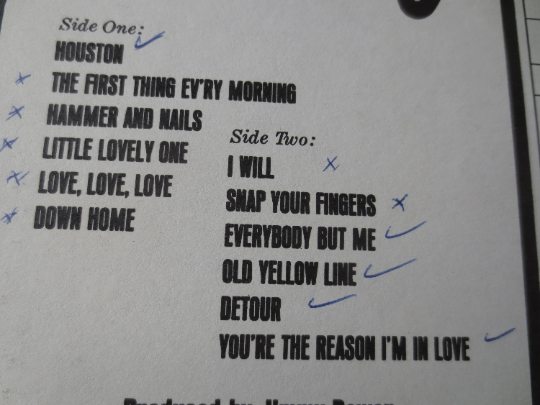 Side One:
HOUSTON
THE FIRST THING EV'RY MORNING
HAMMER AND NAILS
LITTLE LOVELY ONE
LOVE, LOVE, LOVE
DOWN HOME
Side Two:
I WILL
SNAP YOUR FINGERS
EVERYBODY BUT ME
OLD YELLOW LINE
DETOUR
YOU'RE THE REASON I'M IN LOVE
Produced by